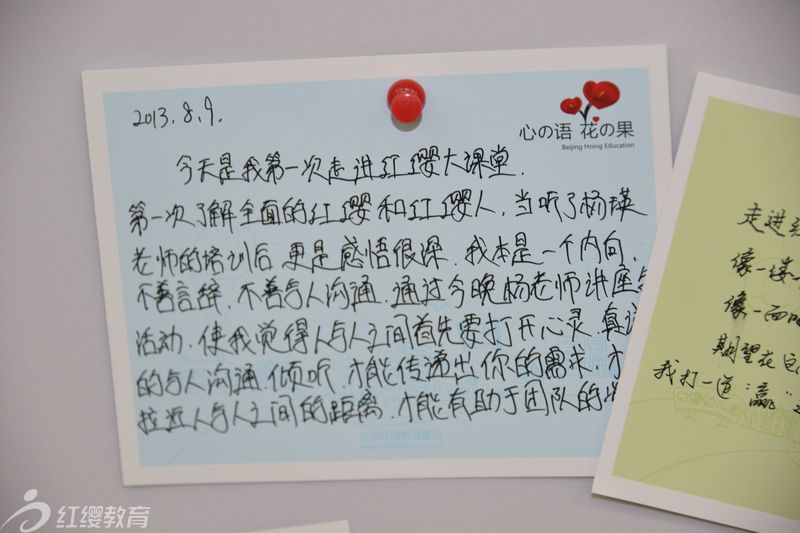 2013.8.9.
心の语 花の果
Beijing Hoing Education
今天是我第一次走进红缨大课堂.
第一次了解全面的红缨和红缨人,当听了杨瑛
老师的培训后,更是感悟很深.我本是一个内向,
不善言辞,不善与人沟通.通过今晚杨老师讲座与
活动,使我觉得人与人之间首先要打开心灵,真
的与人沟通.倾听,才能传递出你的需求.才
拉近人与人之间的距离,才能有助于团队的
北京红缨教育集团
走进
像一
像一
期望花
我打一道"赢"
红缨教育